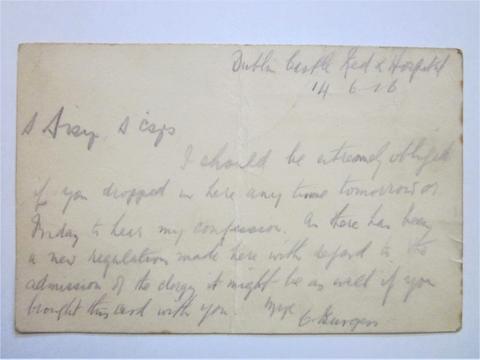 Dublin Castle Red X Hospital
14 6-16
I should be extremely obliged
if you dropped in here any time tomorrow or
Friday to hear my confession. As there has been
a new regulation made here with regard to the
admission of the clergy it might be as well if you
brought this card with you.
Burgess